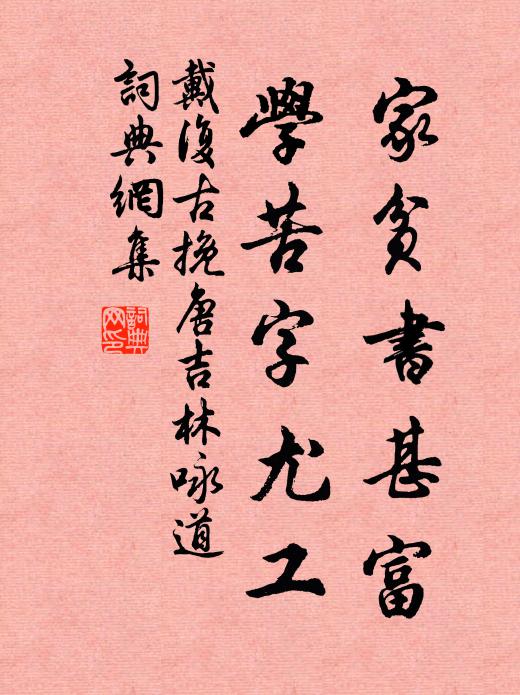 家貧書甚富
學苦字尤工
戴復古挽唐吉林咏道
詞典網集
詞典網印